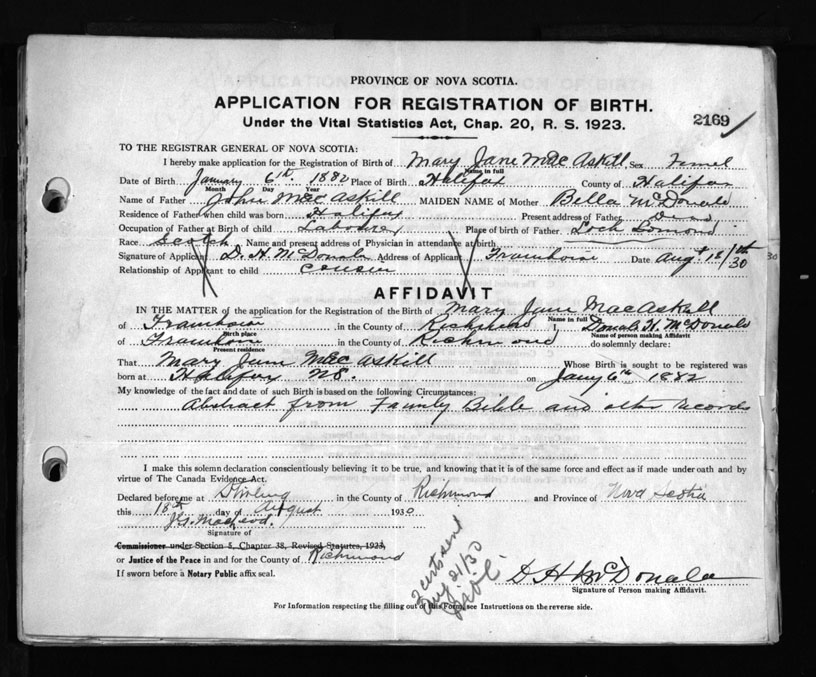 PROVINCE OF NOVA SCOTIA.
APPLICATION FOR REGISTRATION OF BIRTH.
Under the Vital Statistics Act, Chap. 20, R. S. 1923.
2169
TO THE REGISTRAR GENERAL OF NOVA SCOTIA:
I hereby make application for the Registration of Birth of Mary Jane MacAskill Sex Femel
Name in full
Date of Birth January 6th. 1882 Place of Birth Halifax County of Halifax
Month Day Year
Name of Father John MacAskill MAIDEN NAME of Mother Bella McDonald
Residence of Father when child was born Halifax Present address of Father Dead
Occupation of Father at Birth of child Labourer Place of birth of Father Loch Lomond
Race Scotch Name and present address of Physician in attendance at birth
Signature of Applicant D. H. McDonald Address of Applicant Framboise Date Augt 18th/30
Relationship of Applicant to child cousin
AFFIDAVIT
IN THE MATTER of the application for the Registration of the Birth of Mary Jane MacAskill
Name in full
of Framboise in the County of Richmond I, Donald H. McDonald
Birth place Name of person making Affidavit
of Framboise in the County of Richmond do solemnly declare:
Present residence
That Mary Jane MacAskill Whose Birth is sought to be registered was
born at Halifax NS. on Jany 6th 1882
My knowledge of the fact and date of such Birth is based on the following Circumstances:
Abstract from Family Bible and other records
I make this solemn declaration conscientiously believing it to be true, and knowing that it is of the same force and effect as if made under oath and by
virtue of The Canada Evidence Act.
Declared before me at Stirling in the County of Richmond and Province of Nova Scotia
this 18th day of August 1930
J. G. MacLeod.
Signature of
Commissioner under Section 5, Chapter 38, Revised Statutes, 1923,
or Justice of the Peace in and for the County of Richmond
If sworn before a Notary Public affix seal.
2 certs sent
Aug. 21/30
D H McDonald
Signature of Person making Affidavit.
For Information respecting the filling out of this Form, see Instructions on the reverse side.